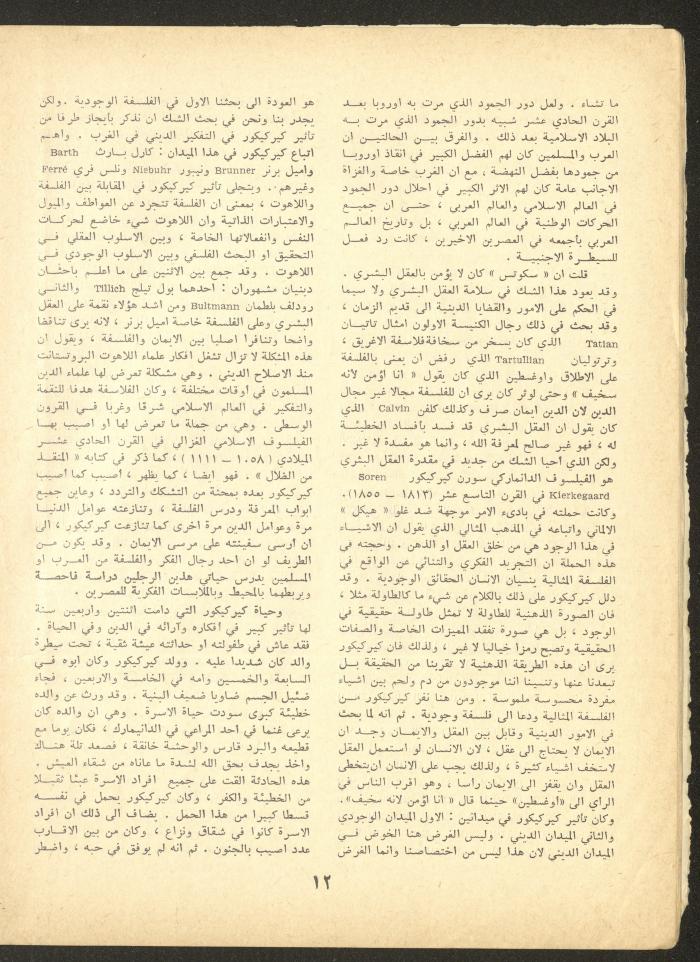 ما تشاء . ولعل دور الجمود الذي مرت به اوروبا بعد
القرن الحادي عشر شبيه بدور الجمود الذي مرت به
البلاد الاسلامية بعد ذلك . والفرق بين الحالتين ان
العرب والمسلمين كان لهم الفضل الكبير في انقاذ اوروبا
من جمودها بفضل النهضة ، مع ان الغرب خاصة والغزاة
الاجانب عامة كان لهم الاثر الكبير في احلال دور الجمود
في العالم الاسلامي والعالم العربي ، حتى ان جميع
الحركات الوطنية في العالم العربي ، بل وتاريخ العالم
العربي بأجمعه في العصرين الاخيرين ، كانت رد فعل
للسيطرة الاجنبية .
قلت ان « سكوتس » كان لا يؤمن بالعقل البشري .
وقد يعود هذا الشك في سلامة العقل البشري ولا سيما
في الحكم على الامور والقضايا الدينية الى قديم الزمان ،
وقد بحث في ذلك رجال الكنيسة الاولون امثال تاتيان
Tatian الذي كان يسخر من سخافة فلاسفة الاغريق ،
وترتوليان Tartullian الذي رفض ان يعنى بالفلسفة
على الاطلاق واوغسطين الذي كان يقول « انا اؤمن لأنه
سخيف » وحتى لوثر كان يرى ان للفلسفة مجالا غير مجال
الدين لان الدين ايمان صرف وكذلك كلفن Calvin الذي
كان يقول ان العقل البشري قد فسد بأفساد الخطيئة
له ، فهو غير صالح لمعرفة الله ، وانما هو مفسدة لا غير .
ولكن الذي أحيا الشك من جديد في مقدرة العقل البشري
هو الفيلسوف الدانماركي سورن كيركيكور Soren
Kierkegaard في القرن التاسع عشر (١٨١٣ – ١٨٥٥).
وكانت حملته في بادىء الامر موجهة ضد غلو « هيكل »
الالماني واتباعه في المذهب المثالي الذي يقول ان الاشياء
في هذا الوجود هي من خلق العقل او الذهن . وحجته في
هذه الحملة ان التجريد الفكري والتنائي عن الواقع في
الفلسفة المثالية ينسيان الانسان الحقائق الوجودية . وقد
دلل كيركيكور على ذلك بالكلام عن شيء ما كالطاولة مثلا ،
فان الصورة الذهنية للطاولة لا تمثل طاولة حقيقية في
الوجود ، بل هي صورة تفقد الميزات الخاصة والصفات
الحقيقية وتصبح رمزا خياليا لا غير ، ولذلك فان كيركيكور
يرى ان هذه الطريقة الذهنية لا تقربنا من الحقيقة بل
تبعدنا عنها وتنسينا اننا موجودون من دم ولحم بين اشياء
مفردة محسوسة ملموسة . ومن هنا نفر كيركيكور من
الفلسفة المثالية ودعا الى فلسفة وجودية . ثم انه لما بحث
في الامور الدينية وقابل بين العقل والايمان وجد ان
الايمان لا يحتاج الى عقل ، لان الانسان لو استعمل العقل
لاستخف اشياء كثيرة ، ولذلك يجب على الانسان ان يتخطى
العقل وان يقفز الى الايمان رأسا ، وهو اقرب الناس في
الرأي الى «اوغسطين» حينما قال « انا اؤمن لانه سخيف».
وكان تأثير كيركيكور في ميدانين : الاول الميدان الوجودي
والثاني الميدان الديني . وليس الغرض هنا الخوض في
الميدان الديني لان هذا ليس من اختصاصنا وانما الغرض
هو العودة الى بحثنا الاول في الفلسفة الوجودية . ولكن
يجدر بنا ونحن في بحث الشك ان نذكر بأيجاز طرفا من
تأثير كيركيكور في التفكير الديني في الغرب . واهم
اتباع كيركيكور في هذا الميدان : كارل بارث Barth
واميل برنر Brunner ونيبور Niebuhr ونلس فري Ferré
وغيرهم . ويتجلى تأثير كيركيكور في المقابلة بين الفلسفة
واللاهوت ، بمعنى ان الفلسفة تتجرد عن العواطف والميول
والاعتبارات الذاتية وان اللاهوت شيء خاضع لحركات
النفس وانفعالاتها الخاصة ، وبين الاسلوب العقلي في
التحقيق او البحث الفلسفي وبين الاسلوب الوجودي في
اللاهوت . وقد جمع بين الاثنين على ما اعلم باحثان
دينيان مشهوران : احدهما بول تيلج Tillich والثاني
رودلف بلطمان Bultmann ومن اشد هؤلاء نقمة على العقل
البشري وعلى الفلسفة خاصة اميل برنر ، لانه يرى تناقضا
واضحا وتنافرا اصليا بين الايمان والفلسفة ، ويقول ان
هذه المشكلة لا تزال تشغل افكار علماء اللاهوت البروتستانت
منذ الاصلاح الديني . وهي مشكلة تعرض لها علماء الدين
المسلمون في أوقات مختلفة ، وكان الفلاسفة هدفا للنقمة
والتفكير في العالم الاسلامي شرقا وغربا في القرون
الوسطى . وهي من جملة ما تعرض لها او اصيب بها
الفيلسوف الاسلامي الغزالي في القرن الحادي عشر
الميلادي ( ١٠٥٨ – ١١١١ ) ، كما ذكر في كتابه « المنقذ
من الضلال » . فهو ايضا ، كما يظهر ، أصيب كما أصيب
كيركيكور بعده بمحنة من التشكك والتردد ، وعاين جميع
ابواب المعرفة ودرس الفلسفة ، وتنازعته عوامل الدنيا
مرة وعوامل الدين مرة اخرى كما تنازعت كيركيكور ، الى
ان ارسى سفينته على مرسى الايمان . وقد يكون من
الطريف لو ان احد رجال الفكر والفلسفة من العرب او
المسلمين يدرس حياتي هذين الرجلين دراسة فاحصة
ويربطهما بالمحيط وبالملابسات الفكرية للعصرين .
وحياة كيركيكور التي دامت اثنتين واربعين سنة
لها تأثير كبير في أفكاره وآرائه في الدين وفي الحياة .
فقد عاش في طفولته او حداثته عيشة ثقيلة ، تحت سيطرة
والد كان شديدا عليه . وولد كيركيكور وكان ابوه في
السابعة والخمسين وامه في الخامسة والاربعين ، فجاء
ضئيل الجسم ضاويا ضعيف البنية . وقد ورث عن والده
خطيئة كبرى سودت حياة الاسرة . وهي ان والده كان
يرعى غنما في احد المراعي في الدانيمارك ، فكان يوما مع
قطيعه والبرد قارس والوحشة خانقة ، فصعد تلة هناك
واخذ يجدف بحق الله لشدة ما عاناه من شقاء العيش .
هذه الحادثة القت على جميع افراد الاسرة عبئا ثقيلا
من الخطيئة والكفر ، وكان كيركيكور يحمل في نفسه
قسطا كبيرا من هذا الحمل . يضاف الى ذلك ان افراد
الاسرة كانوا في شقاق ونزاع ، وكان من بين الاقارب
عدد اصيب بالجنون . ثم انه لم يوفق في حبه ، واضطر
١٢